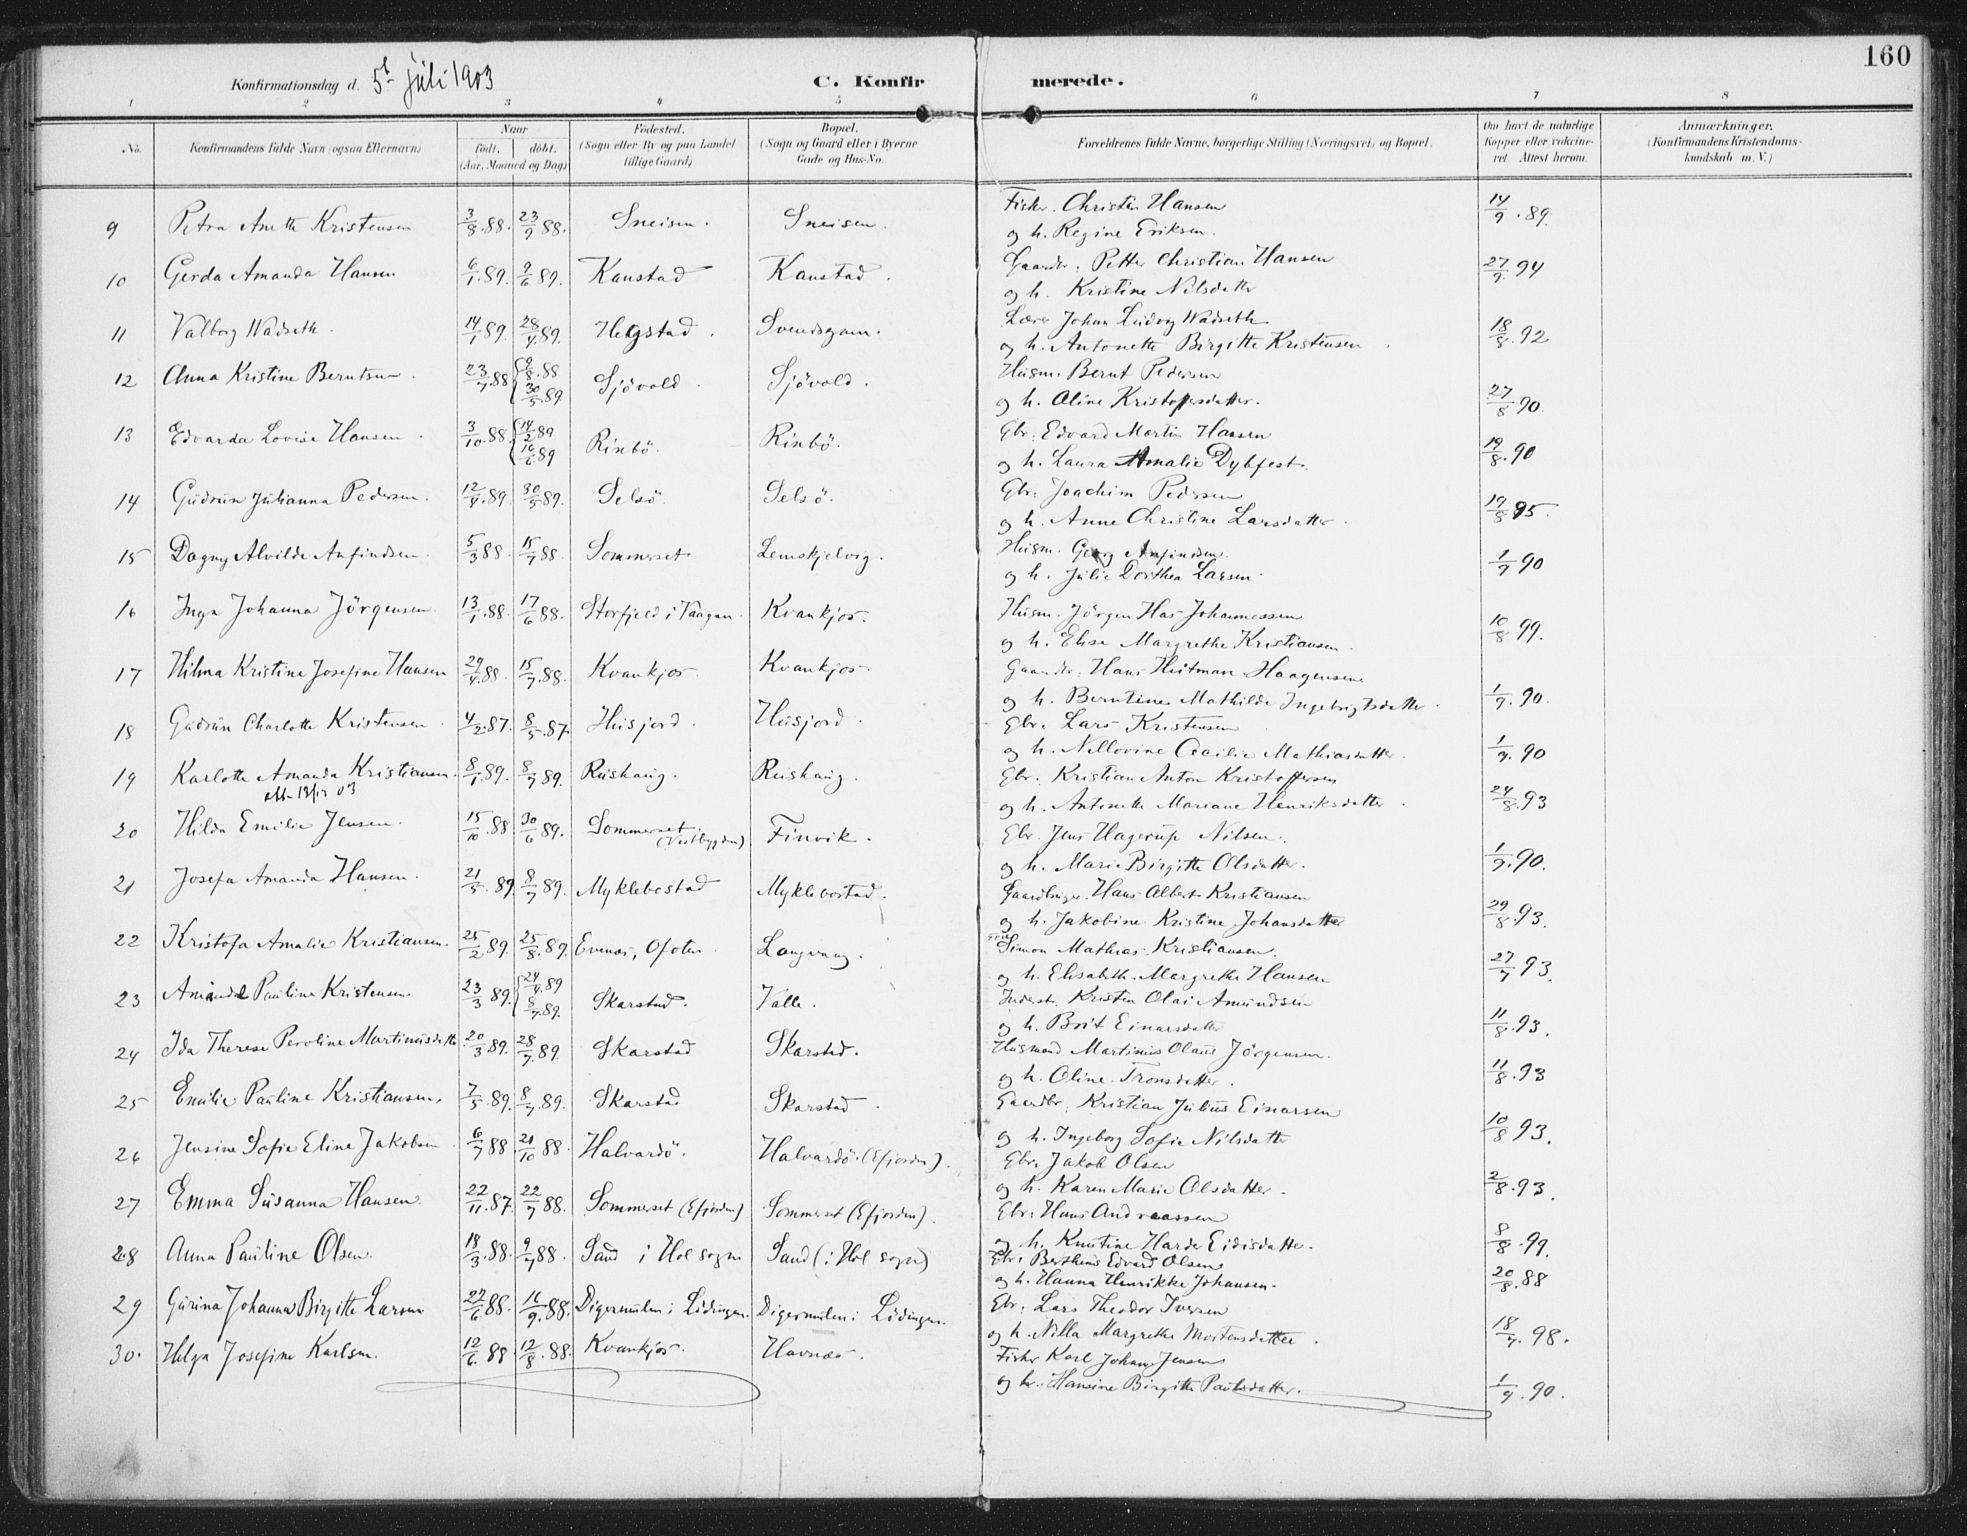 160
Konfirmationsdag d. 5t Juli 1903 C. Konfirmerede.
1 2 3 4 5 6 7 8
No. Konfirmandens fulde Navn (ogsaa Efternavn) Naar født. døbt. (Aar, Maaned og Dag) Fødested. (Sogn eller By og paa Landet tillige Gaard) Bopæl. (Sogn og Gaard eller i Byerne Gade og Hus-No. Forældrenes fulde Navne, borgerlige Stilling (Næringsvei) og Bopæl. Om havt de naturlige Kopper eller vakcineret. Attest herom. Anmærkninger. (Konfirmandens Kristendomskundskab m. V.)
9 Petra Anette Kristensen 3/8.88. 23/9 88. Sneisen. Sneisen. Fisker. Christen Hansen 14/9.89.
og h. Regine Eriksen.
10 Gerda Amanda Hansen 6/1.89. 9/6 89. Kanstad Kanstad. Gaardbr. Petter Christian Hansen 27/9.94
og h. Kristine Nilsdatter
11 Valborg Wadseth. 14/1 89. 28/4.89. Hegstad. Svendsgam. Lærer Johan Ludvig Wadseth 18/8.92
og h. Antonette Birgitte Kristensen.
12 Anna Kristine Berntsen. 23/7.88 9/8.88 30/5.89 Sjövold. Sjövold. Husm. Bernt Pedersen
og h. Oline Kristoffersdatter. 27/8 90.
13 Edvarda Lovise Hansen. 3/10.88. 14/2 89 16/6 89 Rinbö. Rinbö. Gbr: Edvard Martin Hansen
og h. Laura Amalie Dybfest. 19/8.90
14 Gudrun Julianna Pedersen. 12/4.89. 30/5 89. Selsö Selsö. Gbr: Joachim Pedersen
og h. Anne Christine Larsdatter. 19/8 95.
15 Dagny Alvilde Anfindsen. 5/3 88. 15/7 88. Sommerset Lemskjelvig. Husm. Georg Anfindsen.
og h. Julie Dorthea Larsen. 1/9 90
16 Inga Johanna Jörgensen. 13/1.88. 17/6 88. Storfjeld i Vaagan. Kvankjos. Husm. Jörgen Has Johannessen
og h. Elise Margrethe Kristiansen. 10/8 99.
17 Hilma Kristine Josefine Hansen 29/4.88. 15/7.88. Kvankjos. Kvankjos. Gaardbr: Hans Hutman Haagensen
og h. Berntine Mathilde Ingebrigtsdatter. 1/9.90.
18 Gudrun Charlotte Kristensen. 4/2.87. 8/5.87. Husjord. Husjord. Gbr. Lars Kristensen
og h. Nellovine Cecilie Mathiasdatter. 1/9.90
19 Karlotte Amanda Kristiansen. 8/1.89. 8/7 89. Rushaug. Rushaug. Gbr. Kristian Anton Kristoffersen
og h. Antonette Mariane Henriksdatter. 24/8.93
20 Hilda Emilie Jensen. 15/10.88 30/6 89. Sommerset (Vestbygden) Finvik. Gbr. Jens Hagerup Nilsen.
og h. Marie Birgitte Olsdatter. 1/9.90.
21 Josefa Amanda Hansen. 21/5.89. 8/7 89. Myklebostad Myklebostad. Gaardbruger. Hans Albert Kristiansen
og h. Jakobine Kristine Johansdatter 29/8.93.
22 Kristofa Amalie Kristiansen. 25/2 89. 25/8.89. Evenes, Ofoten Langvang. Simon Mathias Kristiansen.
og h. Elisabeth Margrethe Hansen 27/7 93.
23 Amanda Pauline Kristensen 23/3 89. 24/4.89 8/7.89. Skarstad. Valle. Inderst. Kristen Olai Amundsen
og h. Brit Einarsdatter 11/8.93.
24 Ida Therese Peroline Martinusdatter 20/3 89. 28/7.89. Skarstad Skarstad. Husmand Martinus Olaus Jörgensen.
og h. Oline Tronsdatter. 11/8.93
25 Emilie Pauline Kristiansen. 7/5.89. 8/7.89. Skarstad Skarstad. Gaardbr. Kristian Julius Einarsen
og h. Ingeborg Sofie Nilsdatter 10/8 93.
26 Jensine Sofie Eline Jakobsen. 6/7 88. 21/10 88. Halvardö. Halvardö. (Efjorden). Gbr. Jakob Olsen
og h. Karen Marie Olsdatter. 2/8.93.
27 Emma Susanna Hansen. 22/11.87. 22/7 88. Sommerset (Efjorden) Sommerset (Efjorden). Gbr: Hans Andreassen
og h. Knutine Harde Eidisdatter. 8/8.99.
28 Anna Pauline Olsen. 18/3.88. 9/7 88. Sand i Hol sogn Sand (i Hol sogn) Gbr: Bertheus Edvard Olsen
og h. Hanna Henrikke Johansen. 20/8.88
29 Gurina Johanna Birgitte Larsen 22/6.88. 16/9.88. Digermulen i Lödingen. Digermulen i Lödingen. Gbr: Lars Theodor Iversen
og h. Nilla Margrethe Mortensdatter. 18/7.98.
30. Helga Josefine Karlsen. 12/6.88. 12/8.88. Kvankjos. Havnæs. Fisker Karl Johan Jensen
og h. Hansine Birgitte Paulsdatter. 1/9.90.